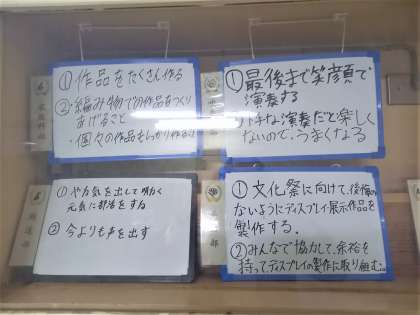 ①作品をたくさん作る
②編み物での作品をつくり
あげること
・個々の作品をしっかり作る
①最後まで笑顔で
演奏する
下手な演奏だと楽しく
ないので、うまくなる
①やる気を出して明るく
元気に部活をする
②今よりも声を出す
①文化祭に向けて、後悔の
ないようにディスプレイ展示作品を
製作する.
②みんなで協力して、余裕を
持ってディスプレイの製作に取り組む。
部